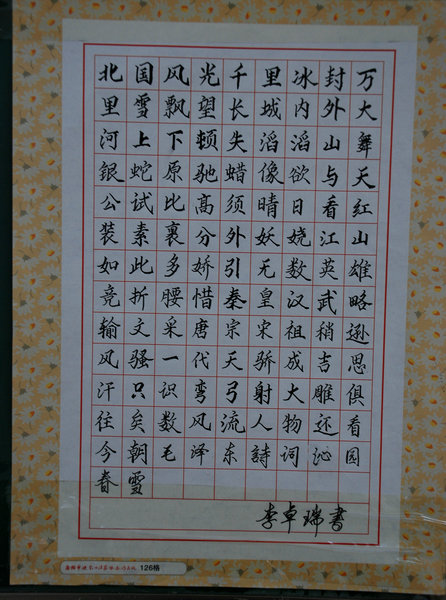 北国风光千里冰封万
里雪飘望长城内外大
河上下顿失滔滔山舞
银蛇原驰蜡像欲与天
公试比高须晴日看红
装素裹分外妖娆江山
如此多娇引无数英雄
竞折腰惜秦皇汉武略
输文采唐宗宋祖稍逊
风骚一代天骄成吉思
汗只识弯弓射大雕俱
往矣数风流人物还看
今朝毛泽东詩词沁园
春雪
李卓瑞書
126格